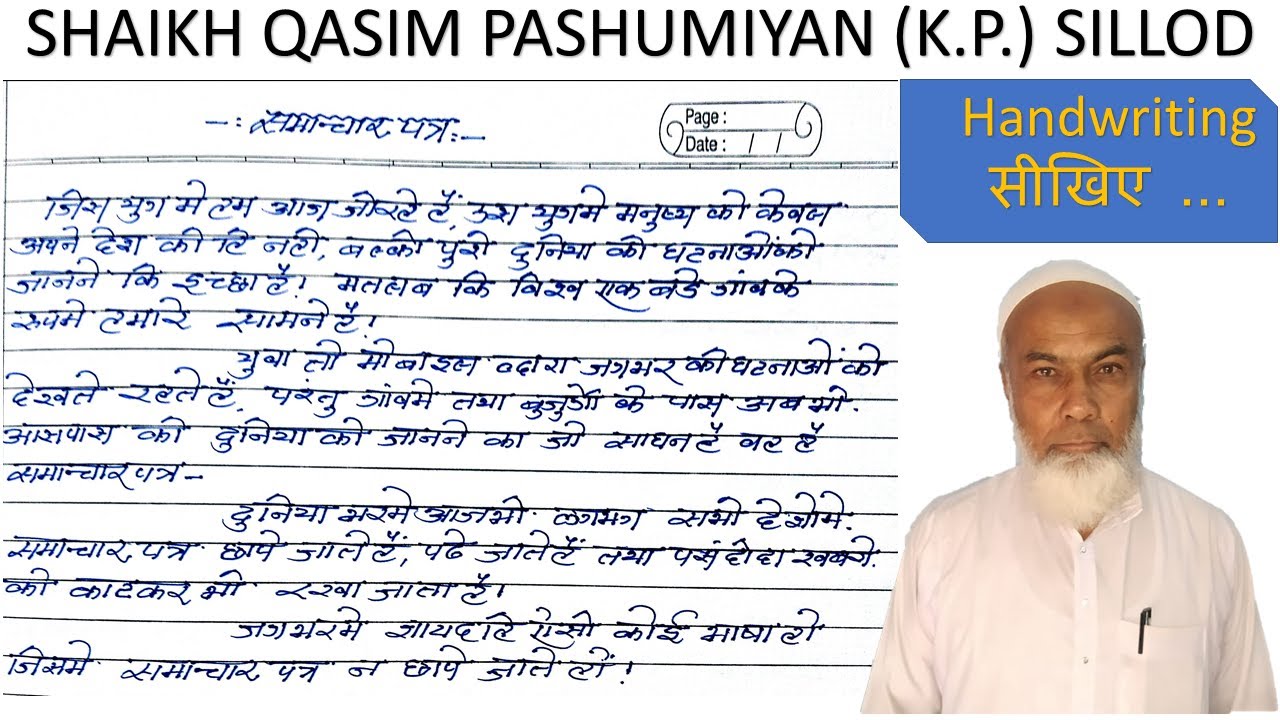 SHAIKH QASIM PASHUMIYAN (K.P.) SILLOD
Handwriting
सीखिए ...
Page :
Date : / /
-: समाचार पत्र :-
जिस युग मे हम आज जी रहे हैं, उस युगमे मनुष्य को केवल
अपने देश की हि नही, बल्की पुरी दुनिया की घटनाओं को
जानने कि इच्छा है। मतलब कि विश्व एक बडे गांव के
रूपमे हमारे सामने है।
युवा तो मोबाइल व्दारा जगभर की घटनाओं को
देखते रहते हैं, परंतु गांवमे तथा बुजुर्गो के पास अब भी
आसपास की दुनिया को जानने का जो साधन है वह है
समाचार पत्र -
दुनिया भरमे आजभी लगभग सभी देशोमे
समाचार पत्र छापे जाते हैं, पढे जाते हैं तथा पसंदीदा खबरो
को काटकर भी रखा जाता है।
जगभरमे शायदहि ऐसी कोई भाषा हो
जिसमे समाचार पत्र न छापे जाते हों!